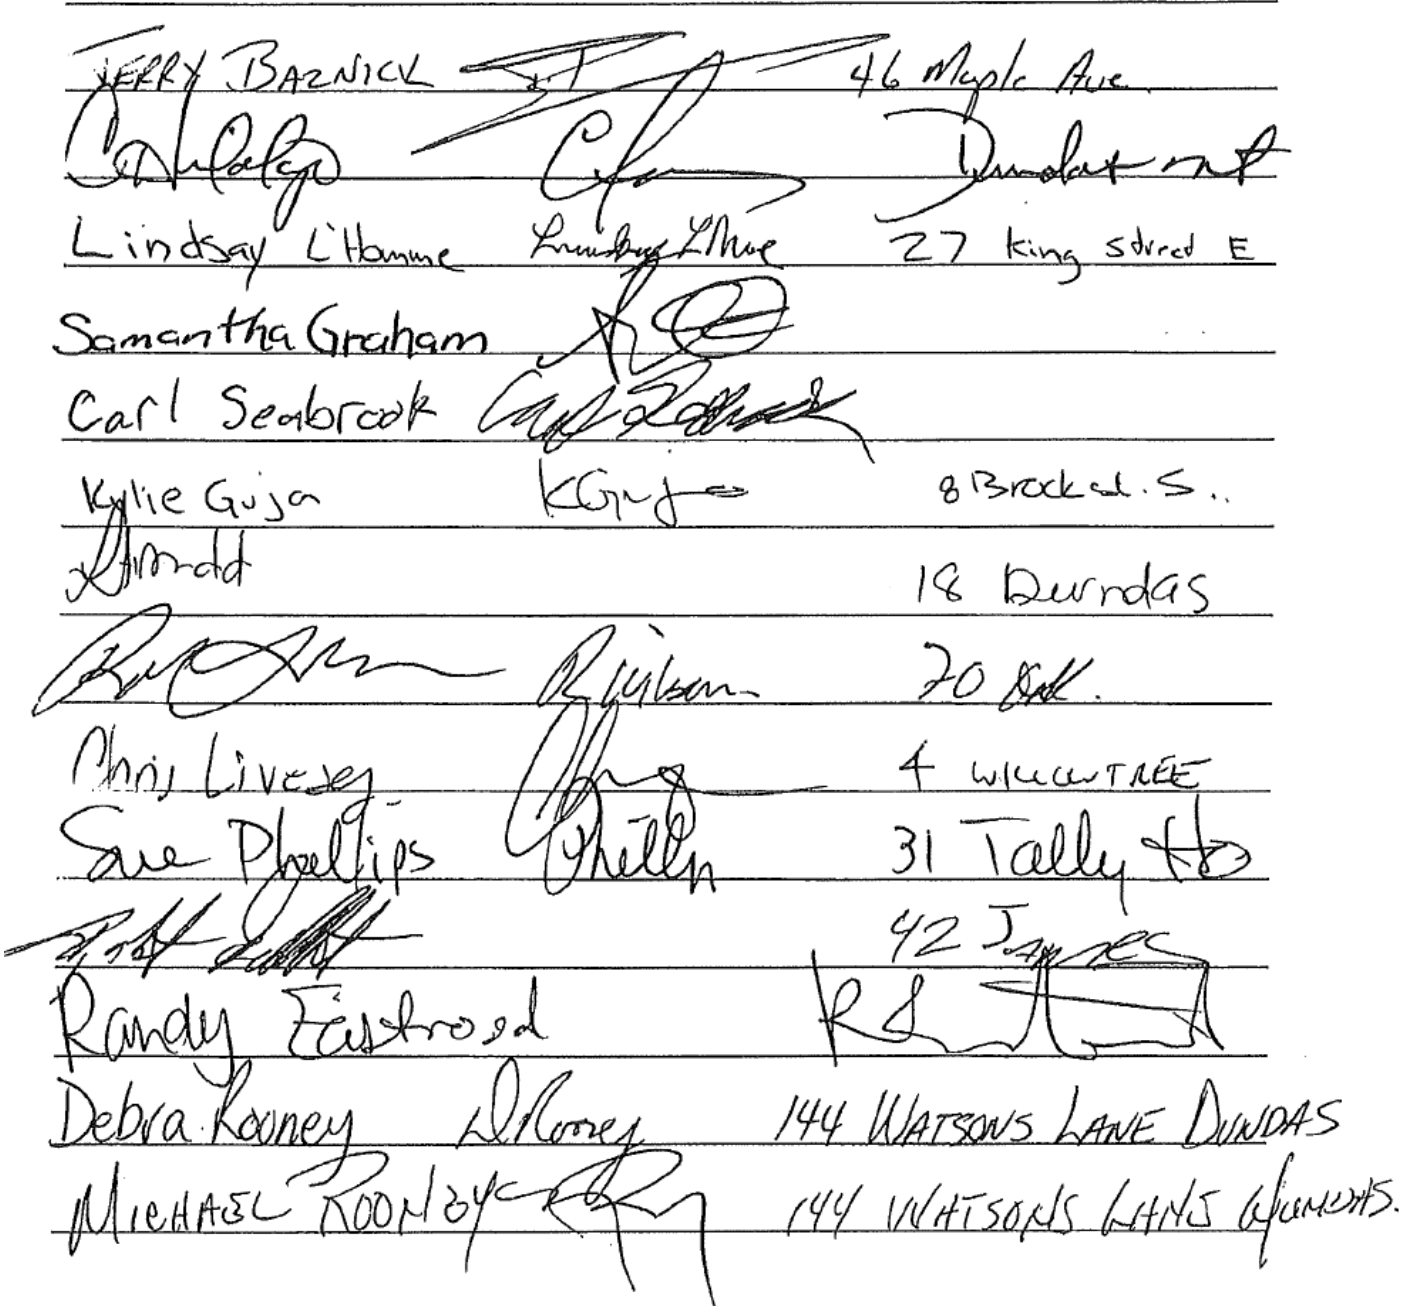 JERRY BAZNICK 46 Maple Ave.
C. Hidalgo
Lindsay L'Homme Lindsay L'Homme 27 King Street E
Samantha Graham
Carl Seabrook Carl Seabrook
Kylie Guja KGuja 8 Brock st. S..
18 Dundas
70
Chris Livesey 4 WILLOWTREE
Sue Phillips Phillips 31 Tally Ho
42 James
Randy Eastwood
Debra Rooney D Rooney 144 WATSONS LANE DUNDAS
MICHAEL ROONEY 144 WATSONS LANE DUNDAS.